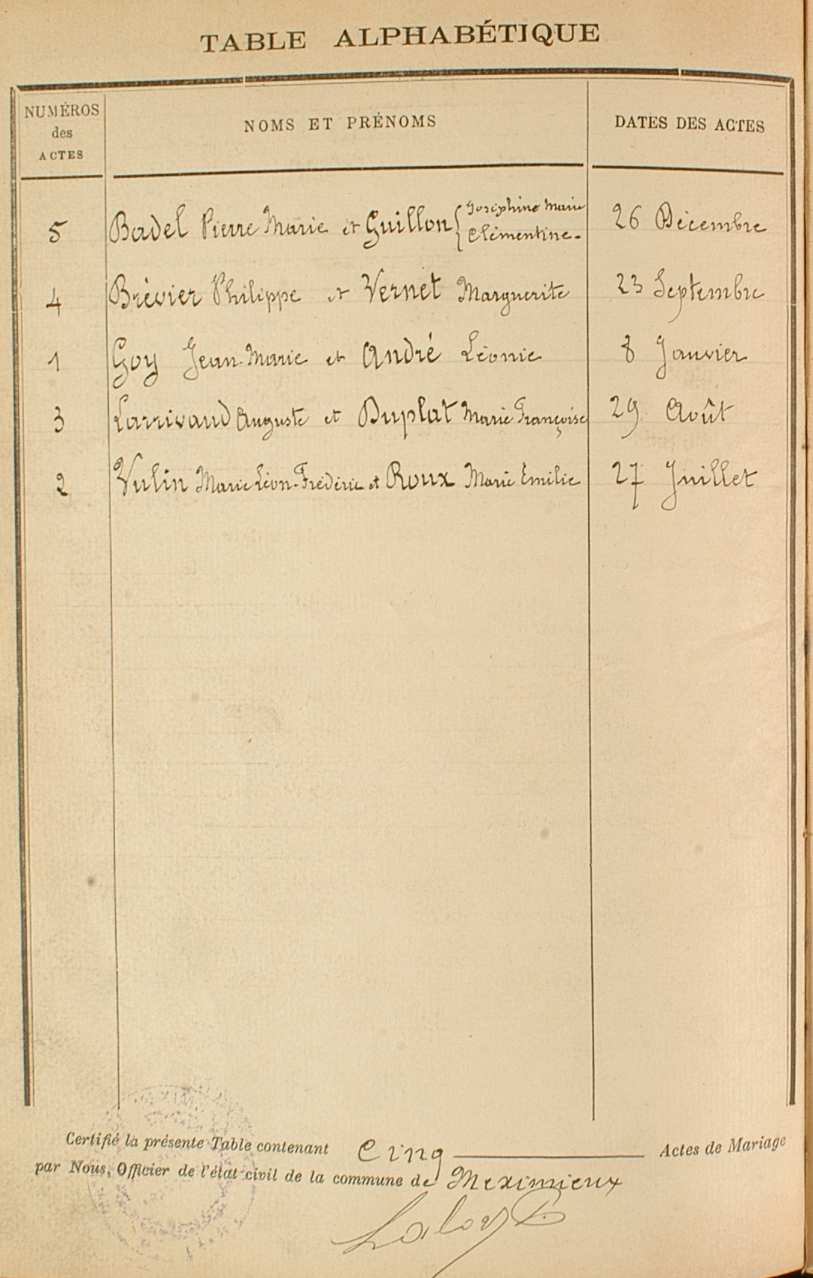 TABLE ALPHABÉTIQUE
NUMÉROS des ACTES NOMS ET PRÉNOMS DATES DES ACTES
5 Badel Pierre Marie et Guillon { Joséphine Marie Clémentine - 26 Décembre
4 Brévier Philippe et Vernet Marguerite 23 Septembre
1 Goy Jean-Marie et André Léonie 8 Janvier
3 Larrivaud Auguste et Duplat Marie Françoise 29 Août
2 Vulin Marie Léon-Frédéric et Roux Marie Emilie 27 Juillet
Certifié la présente Table contenant Cinq Actes de Mariage
par Nous, Officier de l'état civil de la commune de Meximieux